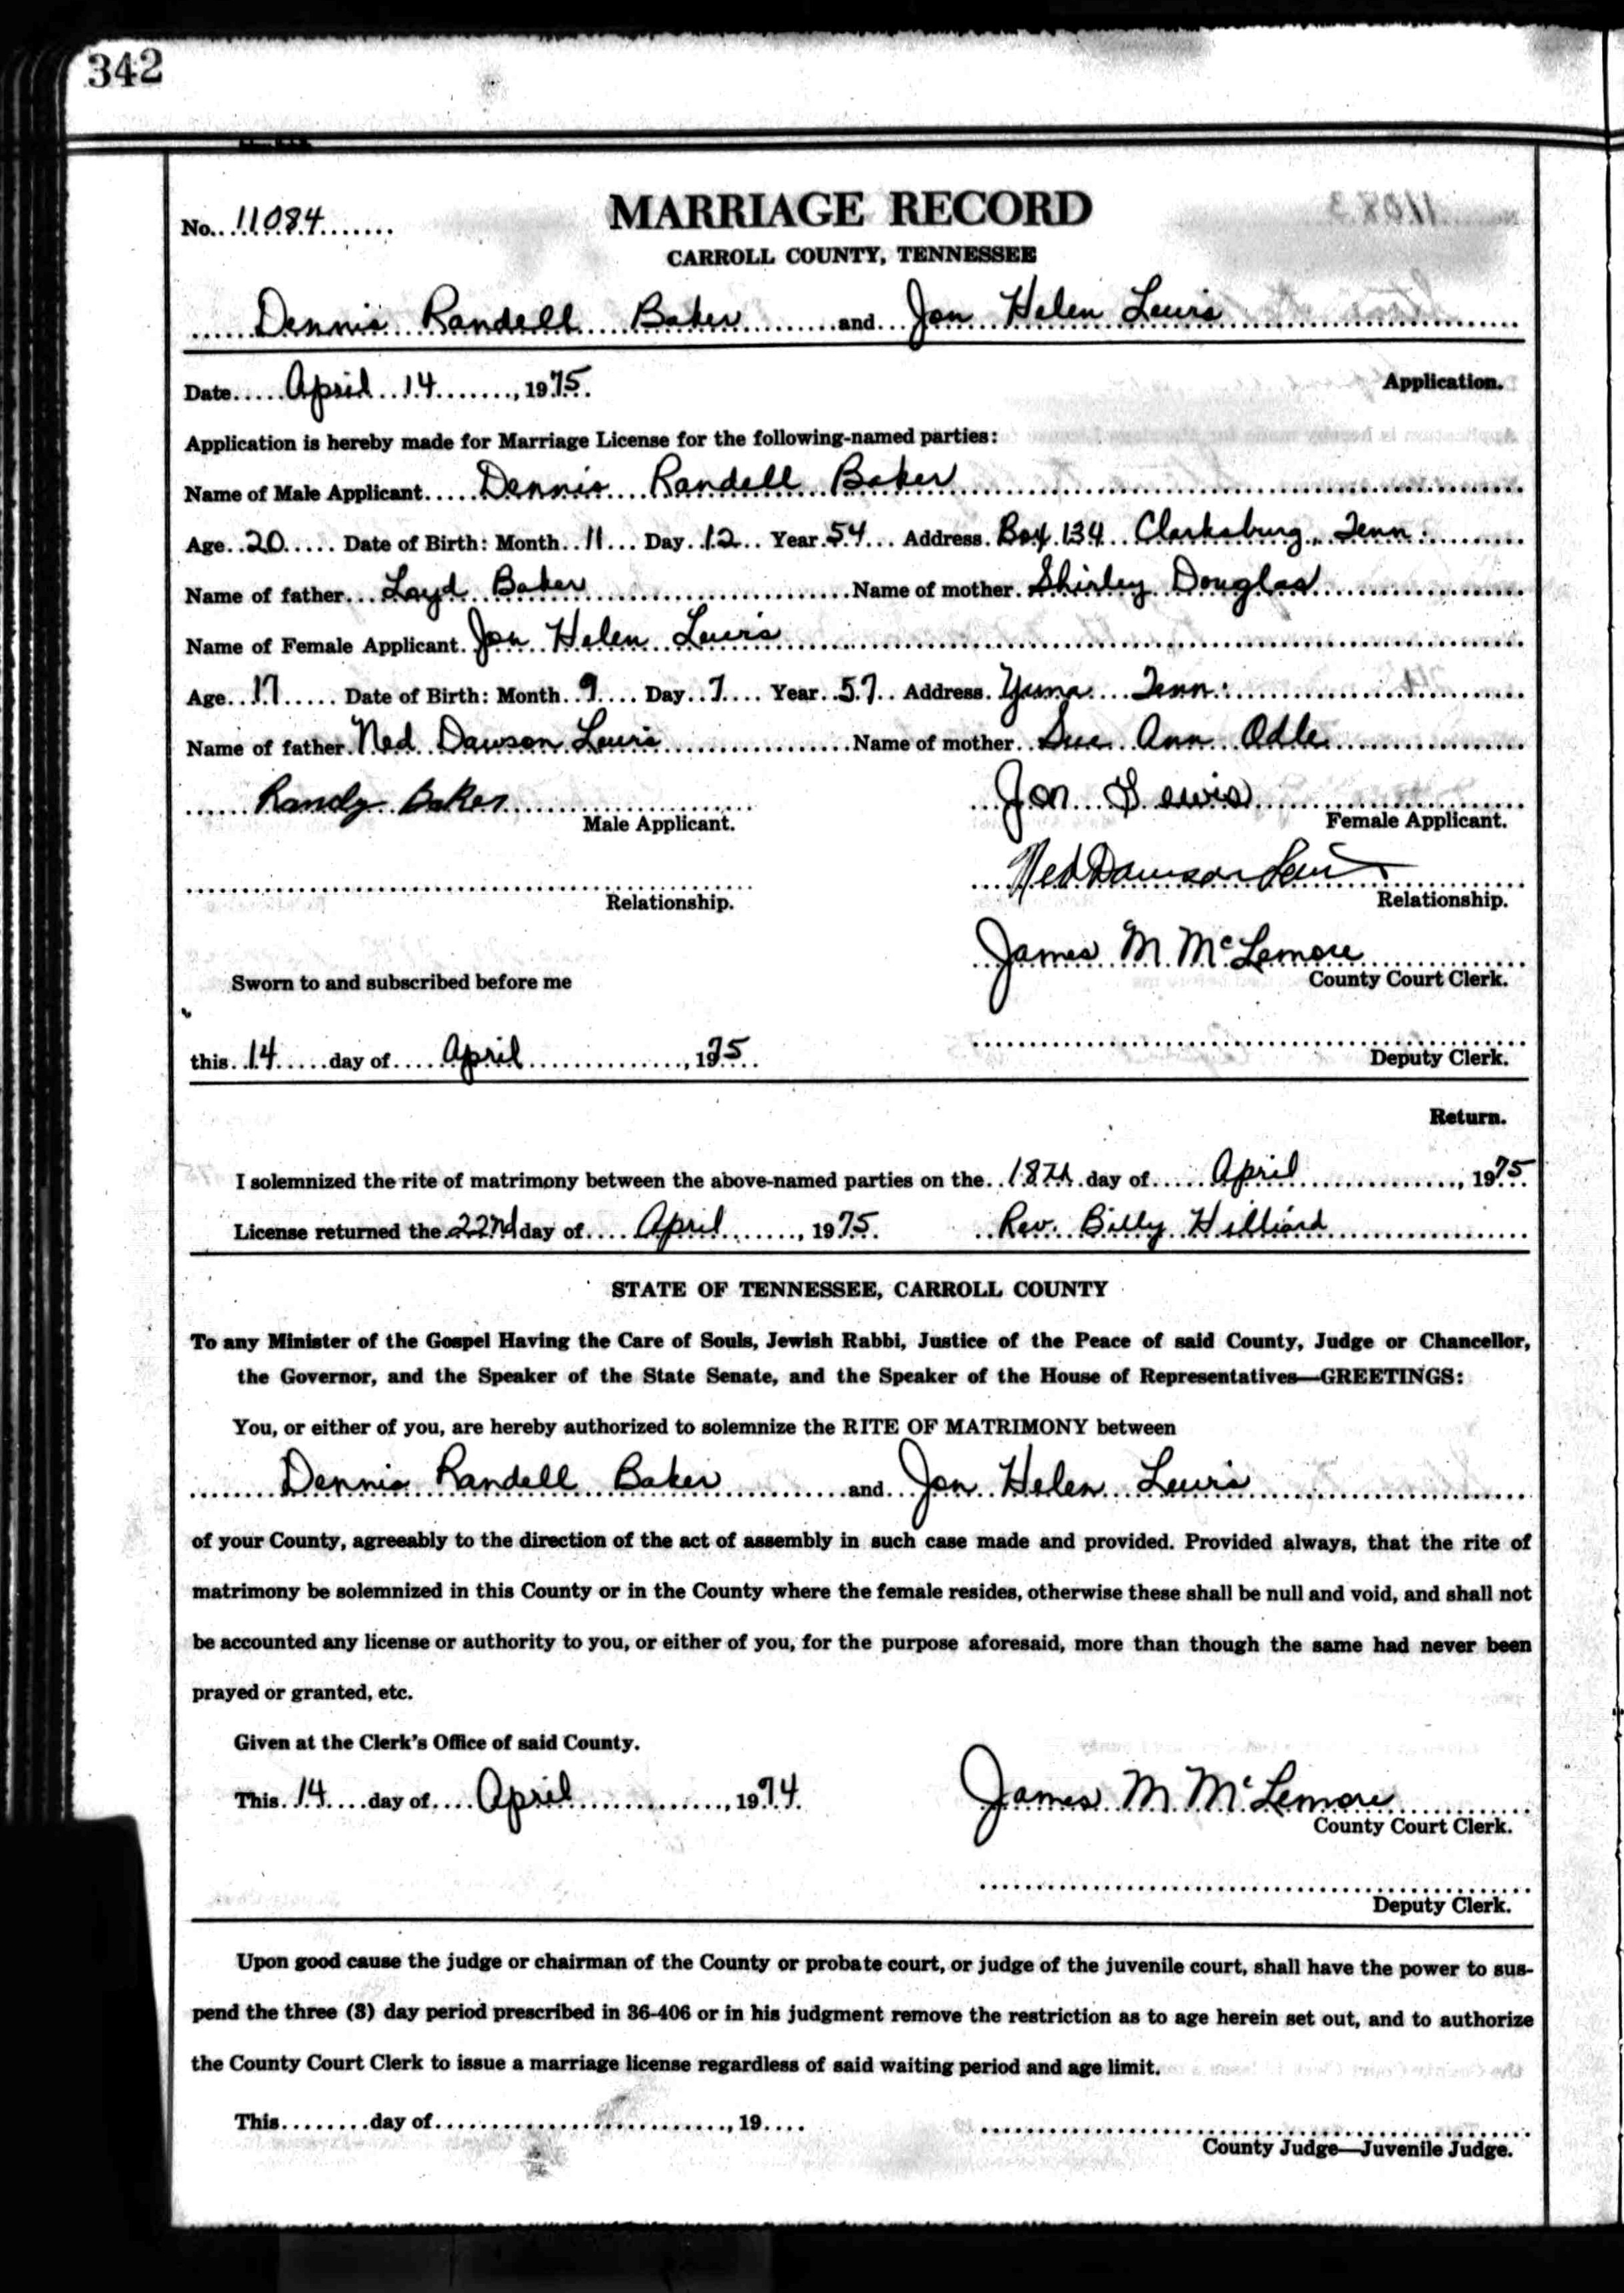 342
No. 11084
MARRIAGE RECORD
CARROLL COUNTY, TENNESSEE
Dennis Randell Baker and Jon Helen Lewis
Date April 14, 1975. Application.
Application is hereby made for Marriage License for the following-named parties:
Name of Male Applicant Dennis Randell Baker
Age 20 Date of Birth: Month 11 Day 12 Year 54 Address Box 134 Clarksburg, Tenn.
Name of father Loyd Baker Name of mother Shirley Douglas
Name of Female Applicant Jon Helen Lewis
Age 17 Date of Birth: Month 9 Day 7 Year 57 Address Yuma Tenn.
Name of father Ned Dawson Lewis Name of mother Sue Ann Odle
Randy Baker Jon Lewis
Male Applicant. Female Applicant.
Ned Dawson Lewis
Relationship. Relationship.
James M McLemore
Sworn to and subscribed before me County Court Clerk.
this 14 day of April, 1975.
Deputy Clerk.
Return.
I solemnized the rite of matrimony between the above-named parties on the 18th day of April, 1975
License returned the 22nd day of April, 1975. Rev. Billy Hilliard
STATE OF TENNESSEE, CARROLL COUNTY
To any Minister of the Gospel Having the Care of Souls, Jewish Rabbi, Justice of the Peace of said County, Judge or Chancellor,
the Governor, and the Speaker of the State Senate, and the Speaker of the House of Representatives—GREETINGS:
You, or either of you, are hereby authorized to solemnize the RITE OF MATRIMONY between
Dennis Randell Baker and Jon Helen Lewis
of your County, agreeably to the direction of the act of assembly in such case made and provided. Provided always, that the rite of
matrimony be solemnized in this County or in the County where the female resides, otherwise these shall be null and void, and shall not
be accounted any license or authority to you, or either of you, for the purpose aforesaid, more than though the same had never been
prayed or granted, etc.
Given at the Clerk's Office of said County.
This 14 day of April, 1974. James M McLemore
County Court Clerk.
Deputy Clerk.
Upon good cause the judge or chairman of the County or probate court, or judge of the juvenile court, shall have the power to sus-
pend the three (3) day period prescribed in 36-406 or in his judgment remove the restriction as to age herein set out, and to authorize
the County Court Clerk to issue a marriage license regardless of said waiting period and age limit.
This........day of............................, 19....
County Judge—Juvenile Judge.